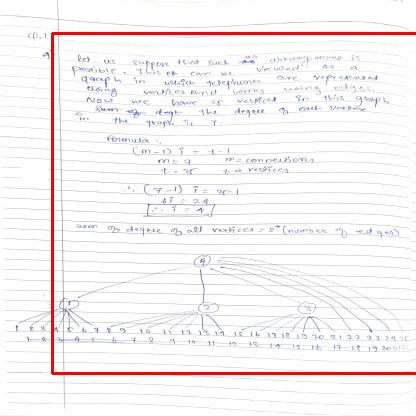 Q.1
let us suppose that such as arrangement is
possible. This can be viewed as a
graph in which telephones are represented
using vertices and wires using edges.
Now we have 25 vertices in this graph
the degree of each vertex
in the graph is 7
Formula :-
(m-1) i = t-1
m = 7 m = connections
t = 25 t = vertices
∴ (7-1) i = 25-1
6i = 24
∴ i = 4
sum of degree of all vertices = 2*(number of edges)
4
1 2 3
1 2 3 4 5 6 7 8 9 10 11 12 13 14 15 16 17 18 19 20 21 22 23 24 25
1 2 3 4 5 6 7 8 9 10 11 12 13 14 15 16 17 18 19 20 21